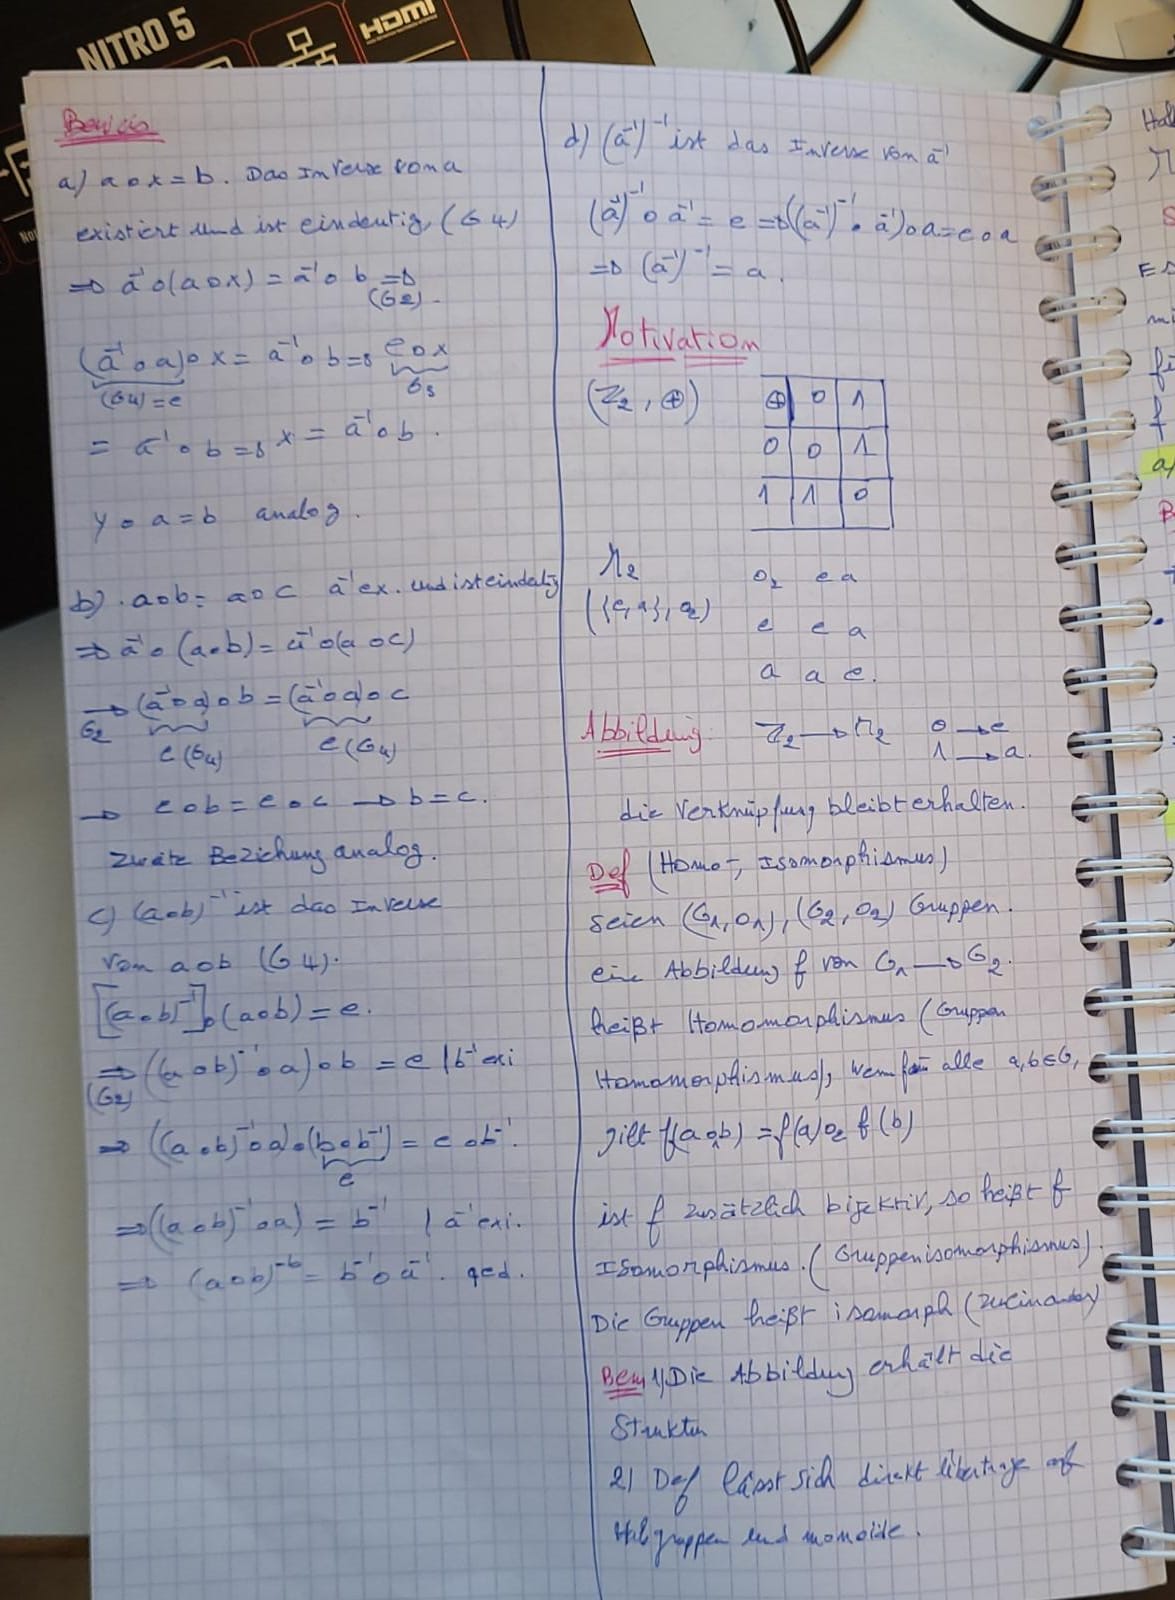 NITRO 5
HDMI
Beweis
a) a∘x=b. Das Inverse von a
existiert und ist eindeutig, (G4)
⇒ a⁻¹∘(a∘x) = a⁻¹∘b ⇒
(G2)
(a⁻¹∘a)∘x = a⁻¹∘b ⇒ e∘x
(G4)=e G3
= a⁻¹∘b ⇒ x = a⁻¹∘b.
y∘a=b analog.
b) a∘b = a∘c a⁻¹ ex. und ist eindeutig
⇒ a⁻¹∘(a∘b) = a⁻¹∘(a∘c)
→ (a⁻¹∘a)∘b = (a⁻¹∘a)∘c
G2 e(G4) e(G4)
→ e∘b = e∘c → b=c.
Zweite Beziehung analog.
c) (a∘b)⁻¹ ist das Inverse
von a∘b (G4).
[(a∘b)⁻¹]∘(a∘b) = e.
⇒ ((a∘b)⁻¹∘a)∘b = e | b⁻¹ exi
(G2)
⇒ ((a∘b)⁻¹∘a)∘(b∘b⁻¹) = e∘b⁻¹.
e
⇒ ((a∘b)⁻¹∘a) = b⁻¹ | a⁻¹ exi.
⇒ (a∘b)⁻ᵇ = b⁻¹∘a⁻¹. qed.
d) (a⁻¹)⁻¹ ist das Inverse von a⁻¹
(a⁻¹)⁻¹∘a⁻¹ = e ⇒ ((a⁻¹)⁻¹∘a⁻¹)∘a = e∘a
⇒ (a⁻¹)⁻¹ = a.
Motivation
(Z₂, ⊕) ⊕ 0 1
0 0 1
1 1 0
∘₂ e a
({e,a}, ∘₂) e e a
a a e.
Abbildung: 0 → e
1 → a.
die Verknüpfung bleibt erhalten.
Def (Homo-, Isomorphismus)
seien (G₁,∘₁), (G₂,∘₂) Gruppen.
eine Abbildung f von G₁ → G₂.
heißt Homomorphismus (Gruppen
Homomorphismus), wenn für alle a,b∈G₁
gilt f(a∘₁b) = f(a)∘₂ f(b)
ist f zusätzlich bijektiv, so heißt f
Isomorphismus. (Gruppenisomorphismus).
Die Gruppen heißt isomorph (zueinander)
Bem 1) Die Abbildung erhält die
Struktur
2) Def lässt sich direkt übertrage auf
Halbgruppen und monoide.